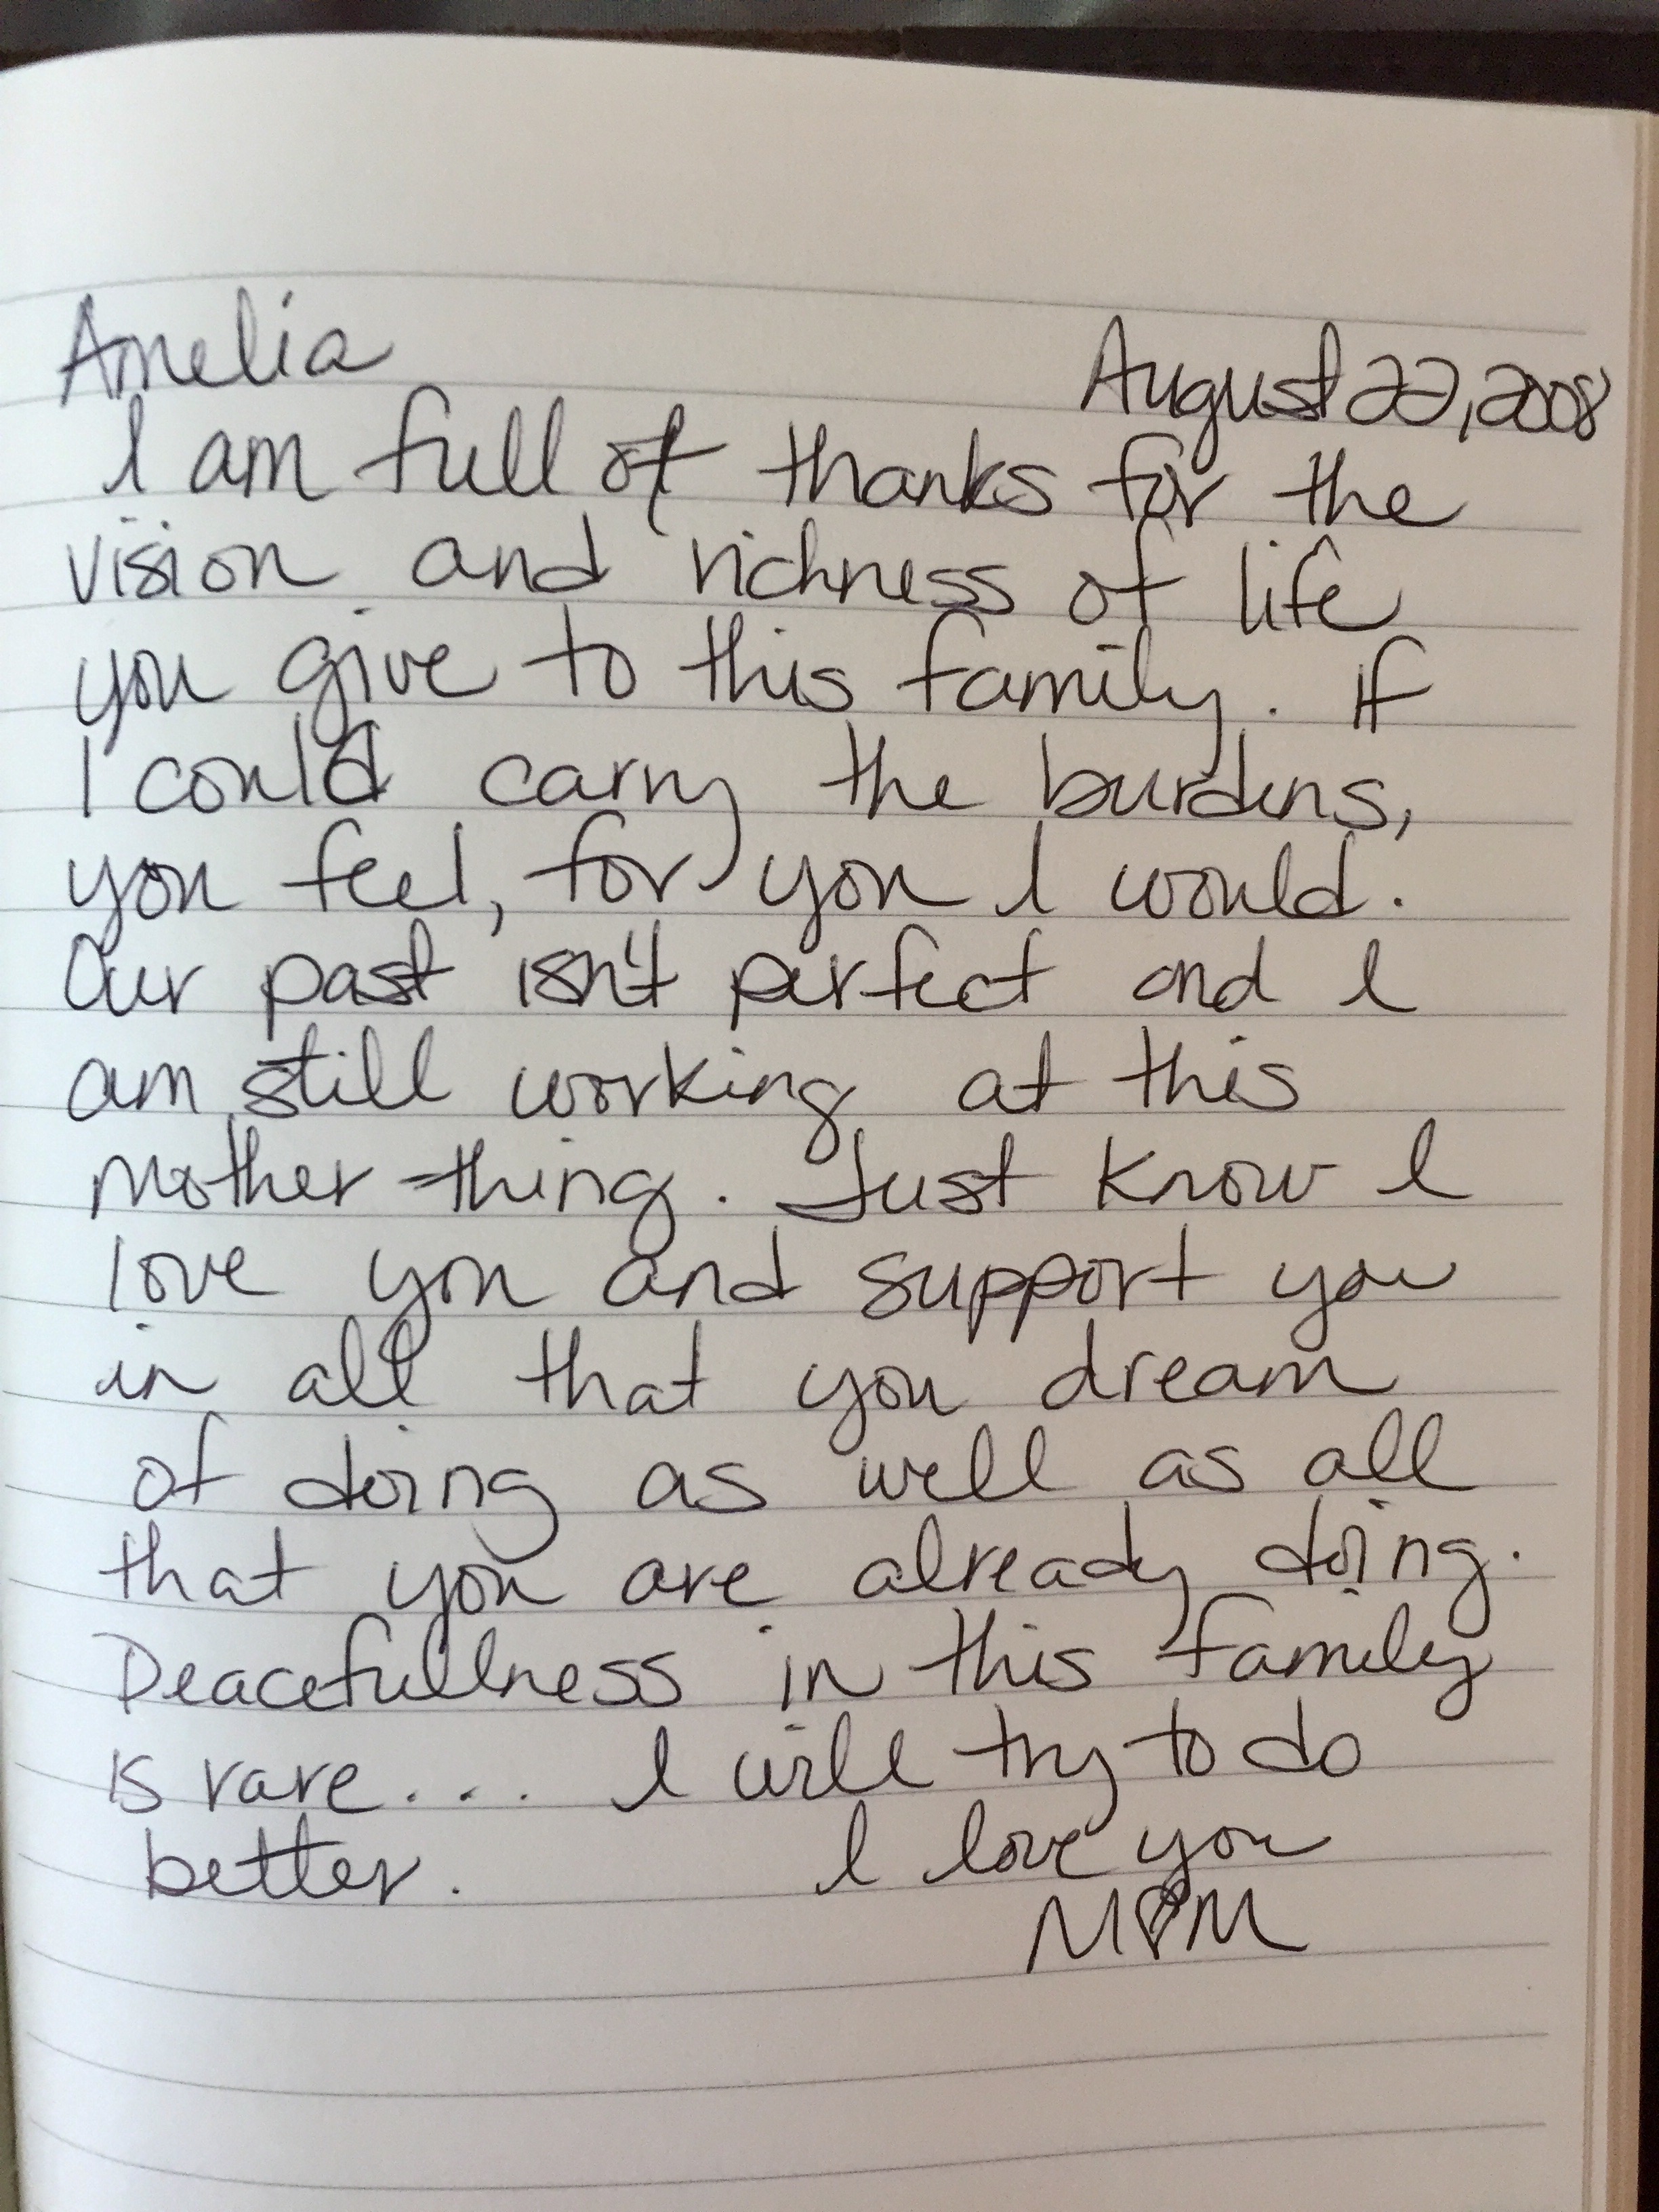 Amelia August 22, 2008
I am full of thanks for the
vision and richness of life
you give to this family. If
I could carry the burdens,
you feel, for you I would.
Our past isn't perfect and I
am still working at this
mother-thing. Just know I
love you and support you
in all that you dream
of doing as well as all
that you are already doing.
Peacefullness in this family
is rare... I will try to do
better. I love you
M♡M